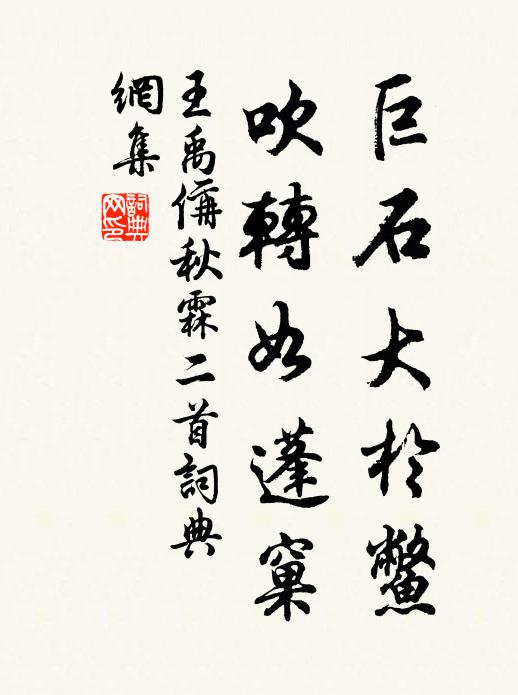 巨石大於鼈
吹轉如蓬窠
王禹偁秋霖二首詞典
網集
詞典网印